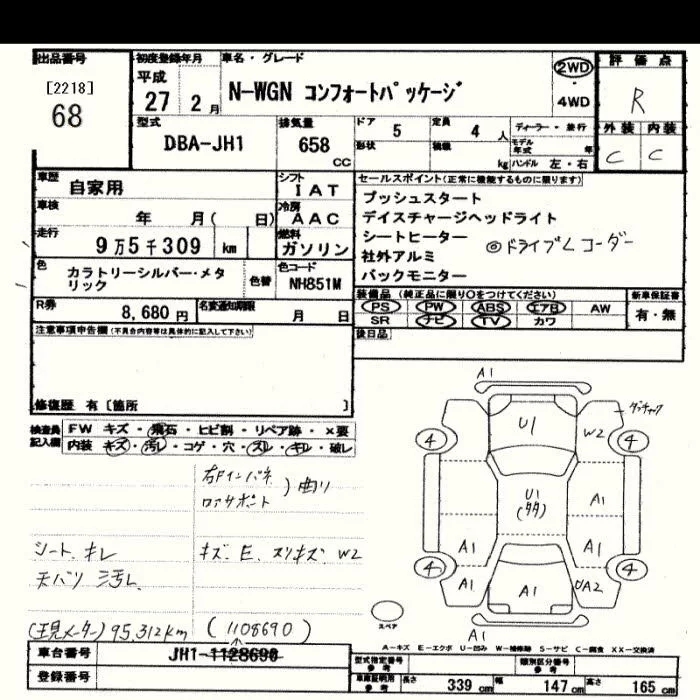 出品番号
[2218]
68
初度登録年月
平成
27 2 月
車名・グレード
N-WGN コンフォートパッケージ
2WD
4WD
評価点
R
外装 内装
C C
型式
DBA-JH1
排気量
658
CC
ドア 5
定員 4 人
形状
積載 kg
ディーラー・並行
モデル年式 年
ハンドル 左・右
車歴
自家用
シフト
IAT
車検
年 月( 日)
冷房
AAC
走行
9万5千309 km
燃料
ガソリン
色
カラトリーシルバー・メタリック
色替
色コード
NH851M
R券
8,680 円
名変通知期限
月 日
セールスポイント(正常に機能するものに限ります)
プッシュスタート
デイスチャージヘッドライト
シートヒーター
◎ドライブレコーダー
社外アルミ
バックモニター
装備品 (純正品に限り○をつけてください)
PS PW ABS エアB AW
SR ナビ TV カワ
新車保証書
有・無
後日品
注意事項申告欄(不具合内容等は具体的に記入して下さい)
修復歴 有 [箇所 ]
検査員記入欄
FW キズ・飛石・ヒビ割・リペア跡・×要
内装 キズ・汚レ・コゲ・穴・スレ・キレ・破レ
右Fインパネ
ロアサポート
)曲り
シート、キレ
キズ、E、スリキズ W2
天バリ 汚レ
(現メーター) 95,312km
(1108690)
A1
U1
W2
ダッチャク
4
4
U1
A1
A1
A1
4
4
A1
A1
UA2
A1
スペア
A-キズ E-エクボ U-凹み W-補修跡 S-サビ C-腐食 XX-交換済
車台番号
JH1-1128690
登録番号
型式指定番号
参考
類別区分番号
参考
車庫証明用
参考
長さ 339 cm
幅 147 cm
高さ 165 cm